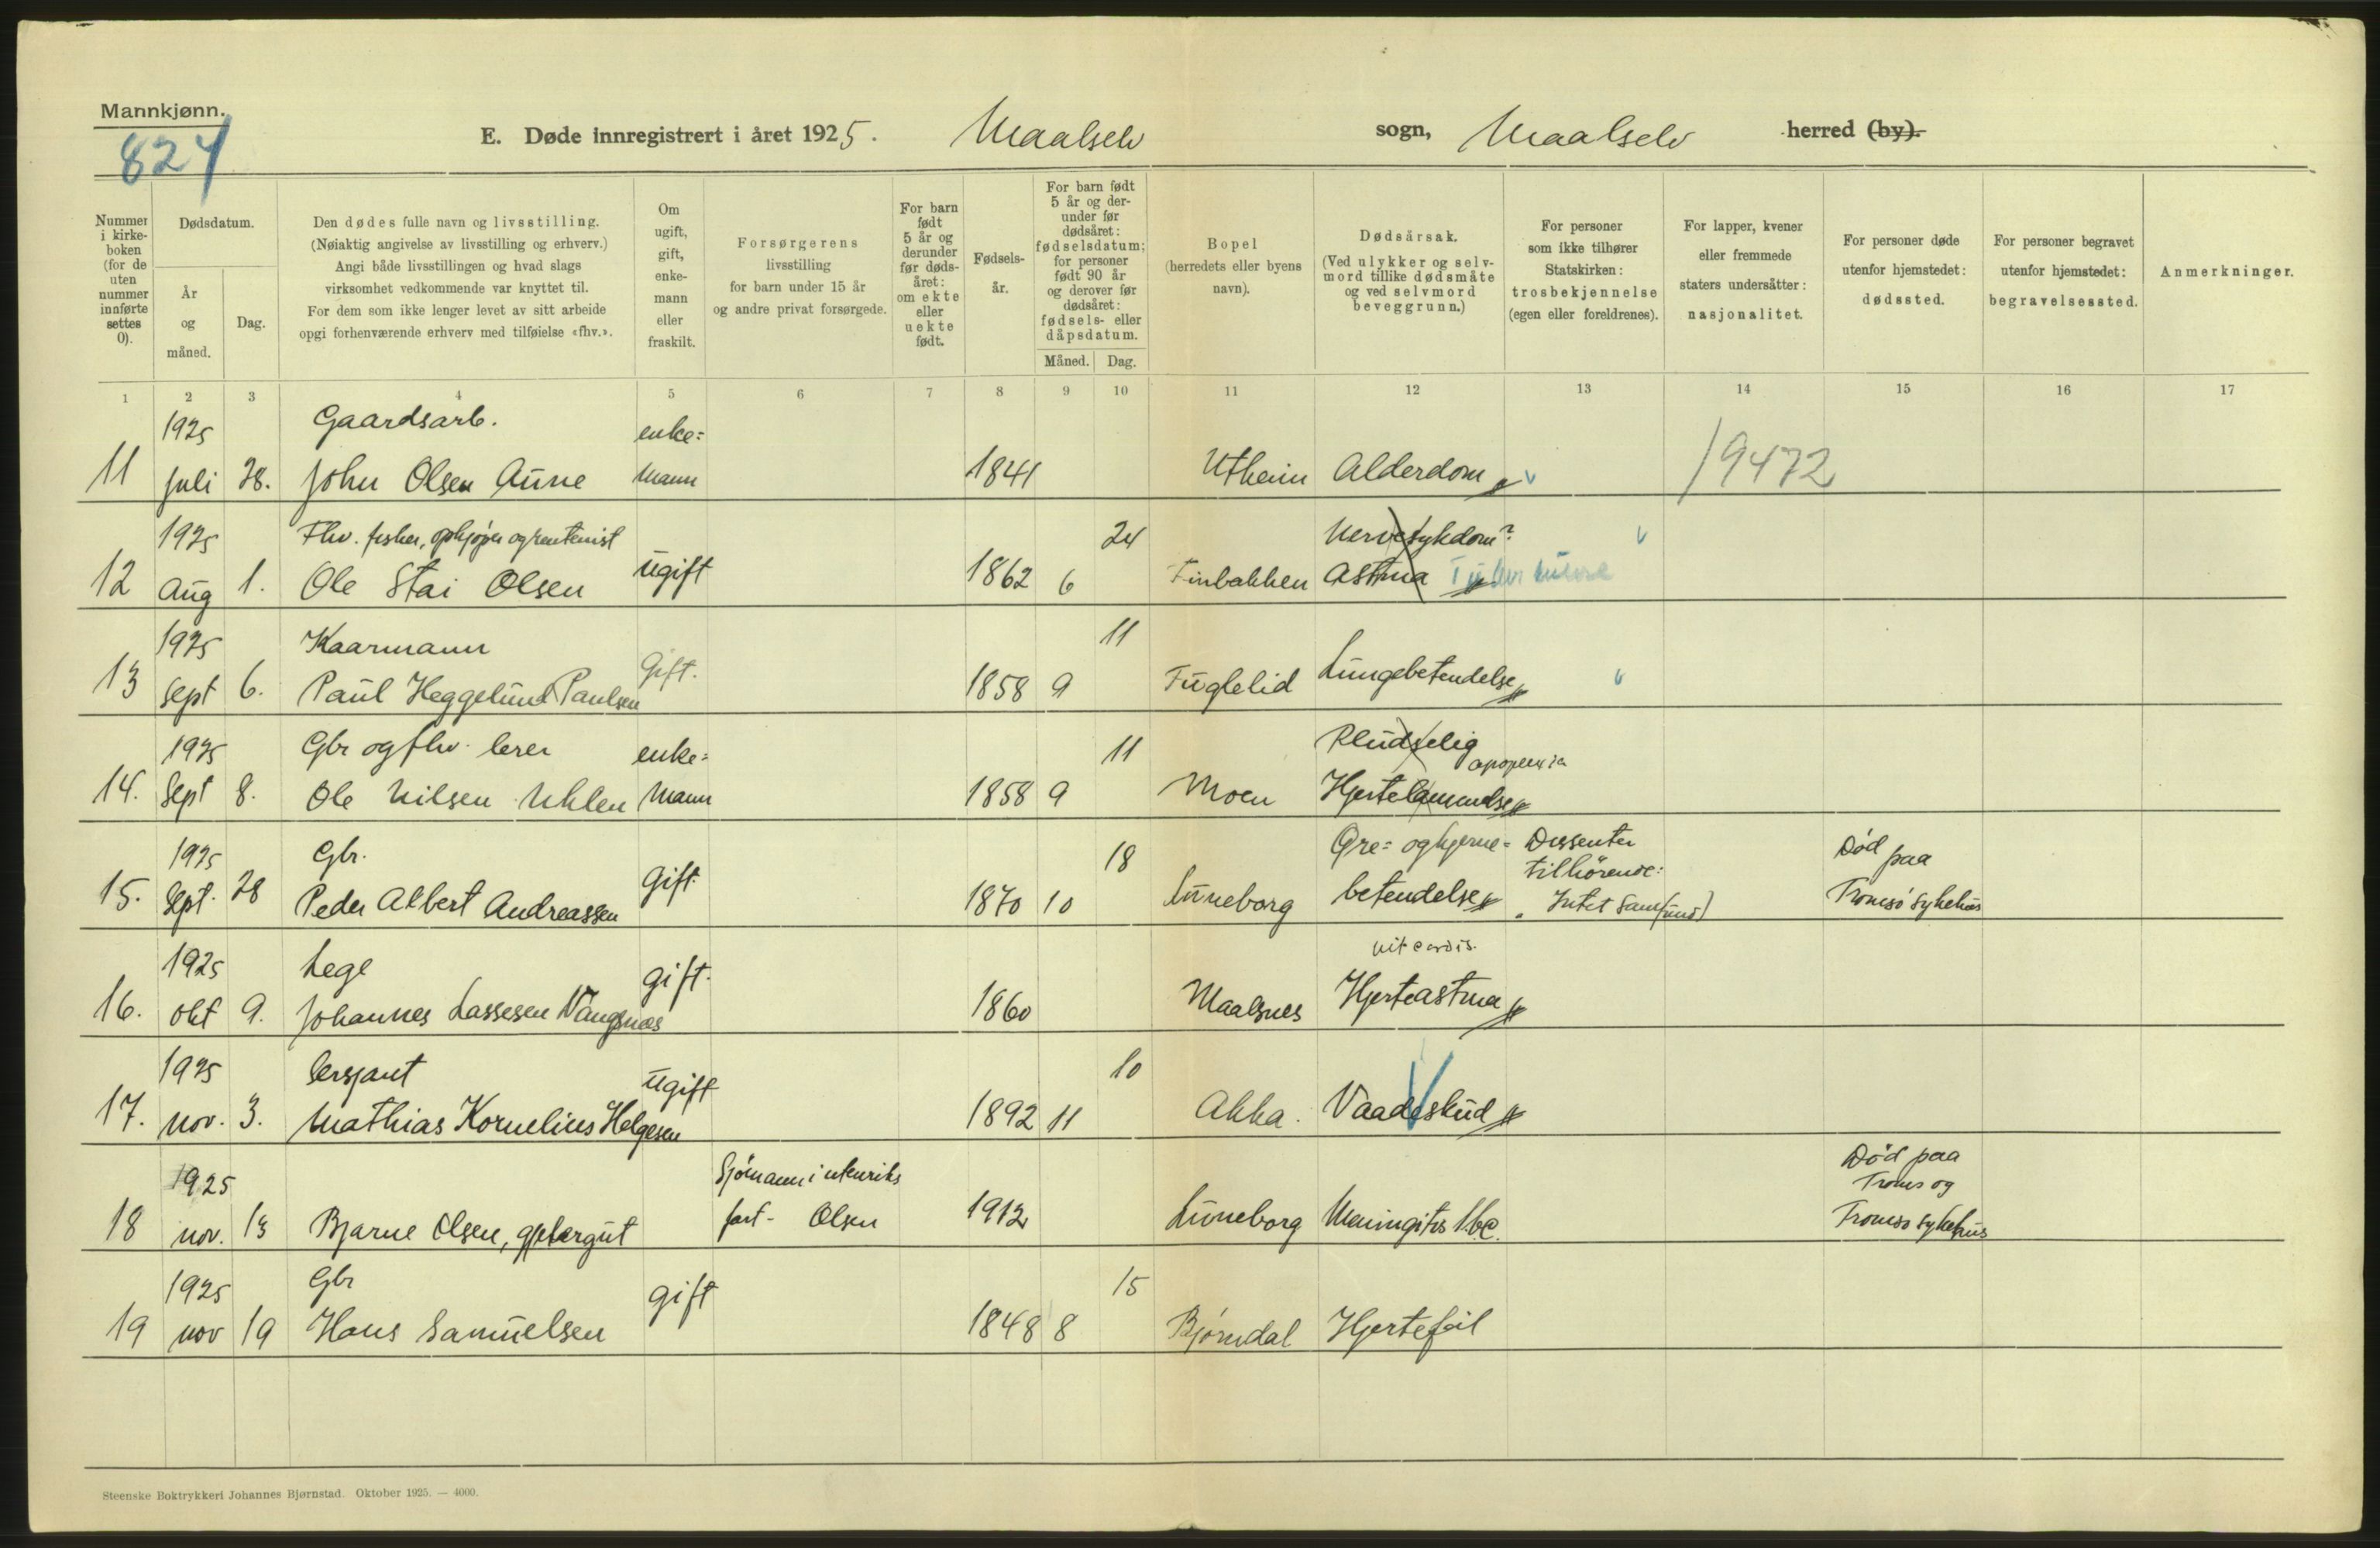 Mannkjønn.
824
E. Døde innregistrert i året 1925.
Maalselv
sogn,
Maalselv
herred (by).
Nummer i kirke- boken (for de uten nummer innførte settes 0).
Dødsdatum.
År og måned.
Dag.
Den dødes fulle navn og livsstilling.
(Nøiaktig angivelse av livsstilling og erhverv.)
Angi både livsstillingen og hvad slags
virksomhet vedkommende var knyttet til.
For dem som ikke lenger levet av sitt arbeide
opgi forhenværende erhverv med tilføielse «fhv.».
Om ugift, gift, enke- mann eller fraskilt.
Forsørgerens
livsstilling
for barn under 15 år
og andre privat forsørgede.
For barn født 5 år og derunder før døds- året: om ekte eller uekte født.
Fødsels- år.
For barn født 5 år og der- under før dødsåret: fødselsdatum; for personer født 90 år og derover før dødsåret: fødsels- eller dåpsdatum.
Måned.
Dag.
Bopel
(herredets eller byens
navn).
Dødsårsak.
(Ved ulykker og selv-
mord tillike dødsmåte
og ved selvmord
beveggrunn.)
For personer
som ikke tilhører
Statskirken:
trosbekjennelse
(egen eller foreldrenes).
For lapper, kvener
eller fremmede
staters undersåtter:
nasjonalitet.
For personer døde
utenfor hjemstedet:
dødssted.
For personer begravet
utenfor hjemstedet:
begravelsessted.
Anmerkninger.
1 2 3 4 5 6 7 8 9 10 11 12 13 14 15 16 17
1925 Gaardsarb. enke=
11 juli 28. John Olsen Aune mann 1841 Utheim Alderdom 19472
1925 Fhv. fisker, opkjøper og rentenist 24 Nervesykdom?
12 Aug 1. Ole Stai Olsen ugift 1862 6 Finbakken Astma Tuberkulose
1925 Kaarmann 11
13 Sept 6. Paul Heggelund Paulsen Gift. 1858 9 Fuglelid Lungebetendelse
1925 Gbr og fhv. lerer enke= 11 Pludselig apoplexia
14. Sept 8. Ole Nilsen Uhlen Mann 1858 9 Moen Hjertelammelse
1925 Gbr. 18 Øre= og hjerne= Dissenter Død paa
tilhørende:
15. Sept. 28 Peder Albert Andreassen Gift 1870 10 Luneborg betendelse Intet Samfund Tromsø sykehus
1925 Lege vit cordis.
16. Okt 9. Johannes Lassesen Vangsnæs gift. 1860 Maalsnes Hjerteastma
1925 Sersjant 10
17. nov. 3. Mathias Kornelius Helgesen ugift 1892 11 Akka. Vaadeskud
1925 Sjømann i utenriks Død paa
Troms og
18 nov. 13 Bjarne Olsen, gjetergut fart - Olsen 1912 Luneborg Meningitis tbc. Tromsø sykehus
1925 Gbr 15
19 nov 19 Hans Samuelsen gift 1848 8 Bjørndal Hjertefeil
Steenske Boktrykkeri Johannes Bjørnstad. Oktober 1925. — 4000.